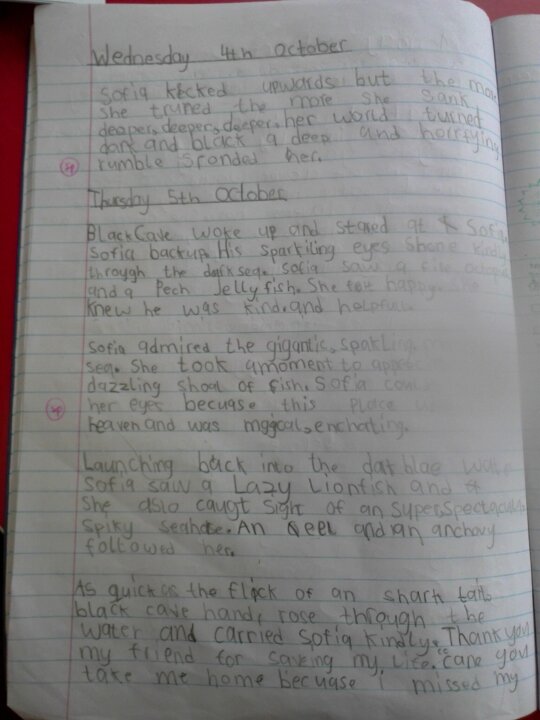 Wednesday 4th October
Sofia kicked upwards but the more
She truned the more she sank
deeper, deeper, deeper. her world turned
dark and black a deep and horrifying
rumble sronded her.
Thursday 5th October
Black Cave woke up and stared at Sofia
Sofia backup. His sparkiling eyes Shone kindly
through the dark sea. Sofia saw a fire octopus
and a Pech Jelly fish. She felt happy. She
knew he was kind. and helpful.
Sofia admired the gigantic, sparkling
sea. She took amoment to
dazzling shoal of fish. Sofia
her eyes becuase this place
heaven and was mgqical, enchating.
Launching back into the dark blae water
Sofia saw a Lazy Lionfish and
She also caugt sight of an SuperSpectacular
Spiky seahorse. An eel and an anchovy
followed her.
As quick as the flick of an shark tail,
black cave hand, rose through the
water and carried Sofia kindly. Thank you
my friend for saveing my Life. cane you
take me home becuase i missed my